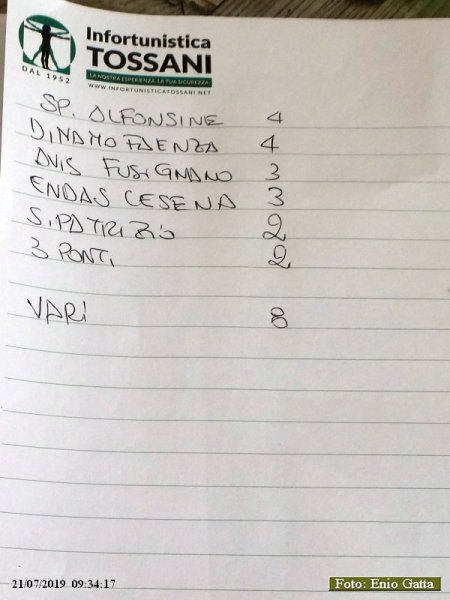 Infortunistica
TOSSANI
DAL 1952
LA NOSTRA ESPERIENZA, LA TUA SICUREZZA.
WWW.INFORTUNISTICATOSSANI.NET
SP. ALFONSINE 4
DINAMO FAENZA 4
AVIS FUSIGNANO 3
ENDAS CESENA 3
S. PATRIZIO 2
3 PONTI 2
VARI 8
21/07/2019 09:34:17
Foto: Enio Gatta